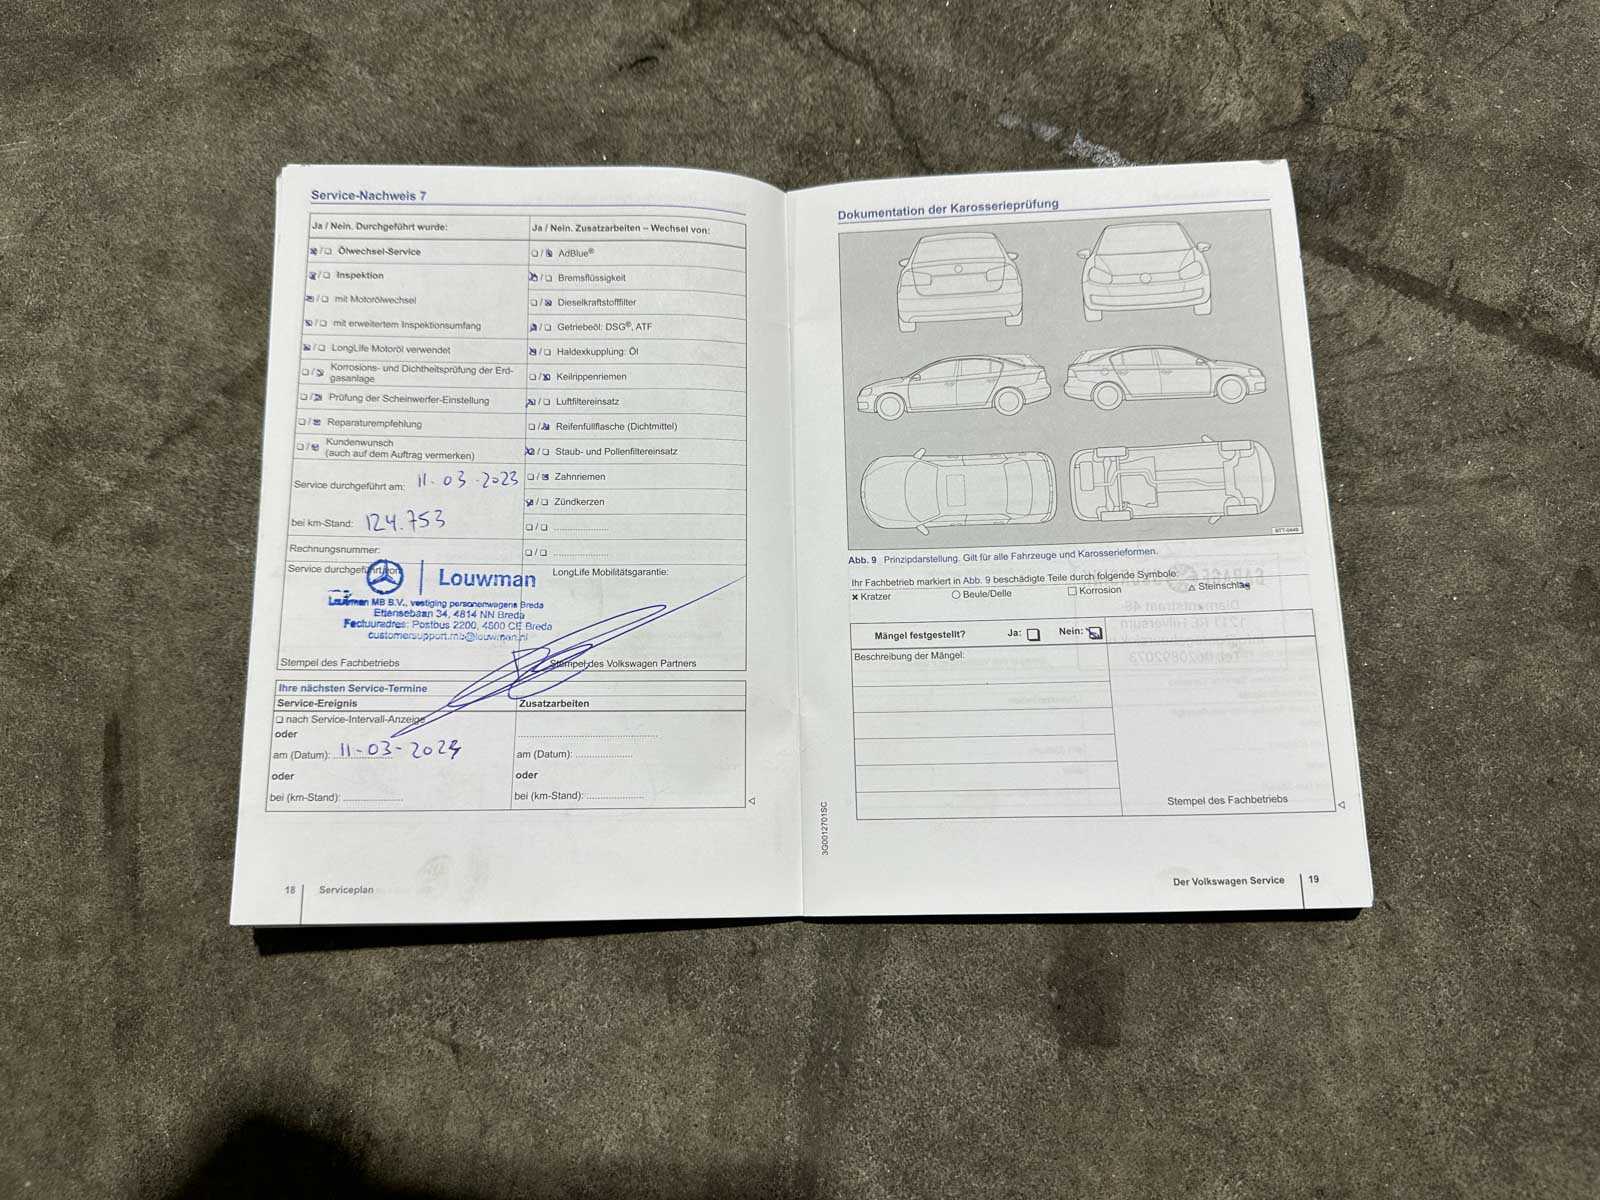 Service-Nachweis 7
Ja / Nein. Durchgeführt wurde:
☒/☐ Ölwechsel-Service
☒/☐ Inspektion
☒/☐ mit Motorölwechsel
☒/☐ mit erweitertem Inspektionsumfang
☒/☐ LongLife Motoröl verwendet
☐/☒ Korrosions- und Dichtheitsprüfung der Erd-
gasanlage
☐/☒ Prüfung der Scheinwerfer-Einstellung
☐/☒ Reparaturempfehlung
☐/☒ Kundenwunsch
(auch auf dem Auftrag vermerken)
Service durchgeführt am: 11-03-2023
bei km-Stand: 124.753
Rechnungsnummer:
Service durchgeführt von:
Louwman
Louwman MB B.V., vestiging personenwagens Breda
Ettensebaan 34, 4814 NN Breda
Factuuradres: Postbus 2200, 4800 CE Breda
customersupport.mb@louwman.nl
Stempel des Fachbetriebs
Ja / Nein. Zusatzarbeiten – Wechsel von:
☐/☒ AdBlue®
☒/☐ Bremsflüssigkeit
☐/☒ Dieselkraftstofffilter
☒/☐ Getriebeöl: DSG®, ATF
☒/☐ Haldexkupplung: Öl
☐/☒ Keilrippenriemen
☒/☐ Luftfiltereinsatz
☐/☒ Reifenfüllflasche (Dichtmittel)
☒/☐ Staub- und Pollenfiltereinsatz
☐/☒ Zahnriemen
☒/☐ Zündkerzen
☐/☐ ....................
☐/☐ ....................
LongLife Mobilitätsgarantie:
Stempel des Volkswagen Partners
Ihre nächsten Service-Termine
Service-Ereignis
☐ nach Service-Intervall-Anzeige
oder
am (Datum): 11-03-2024
oder
bei (km-Stand): ....................
Zusatzarbeiten
........................................
am (Datum): ....................
oder
bei (km-Stand): ....................
18 Serviceplan
Dokumentation der Karosserieprüfung
BTT-0449
Abb. 9 Prinzipdarstellung. Gilt für alle Fahrzeuge und Karosserieformen.
Ihr Fachbetrieb markiert in Abb. 9 beschädigte Teile durch folgende Symbole:
✖ Kratzer ○ Beule/Delle ☐ Korrosion △ Steinschlag
Mängel festgestellt? Ja: ☐ Nein: ☒
Beschreibung der Mängel:
Stempel des Fachbetriebs
3G0012701SC
Der Volkswagen Service 19